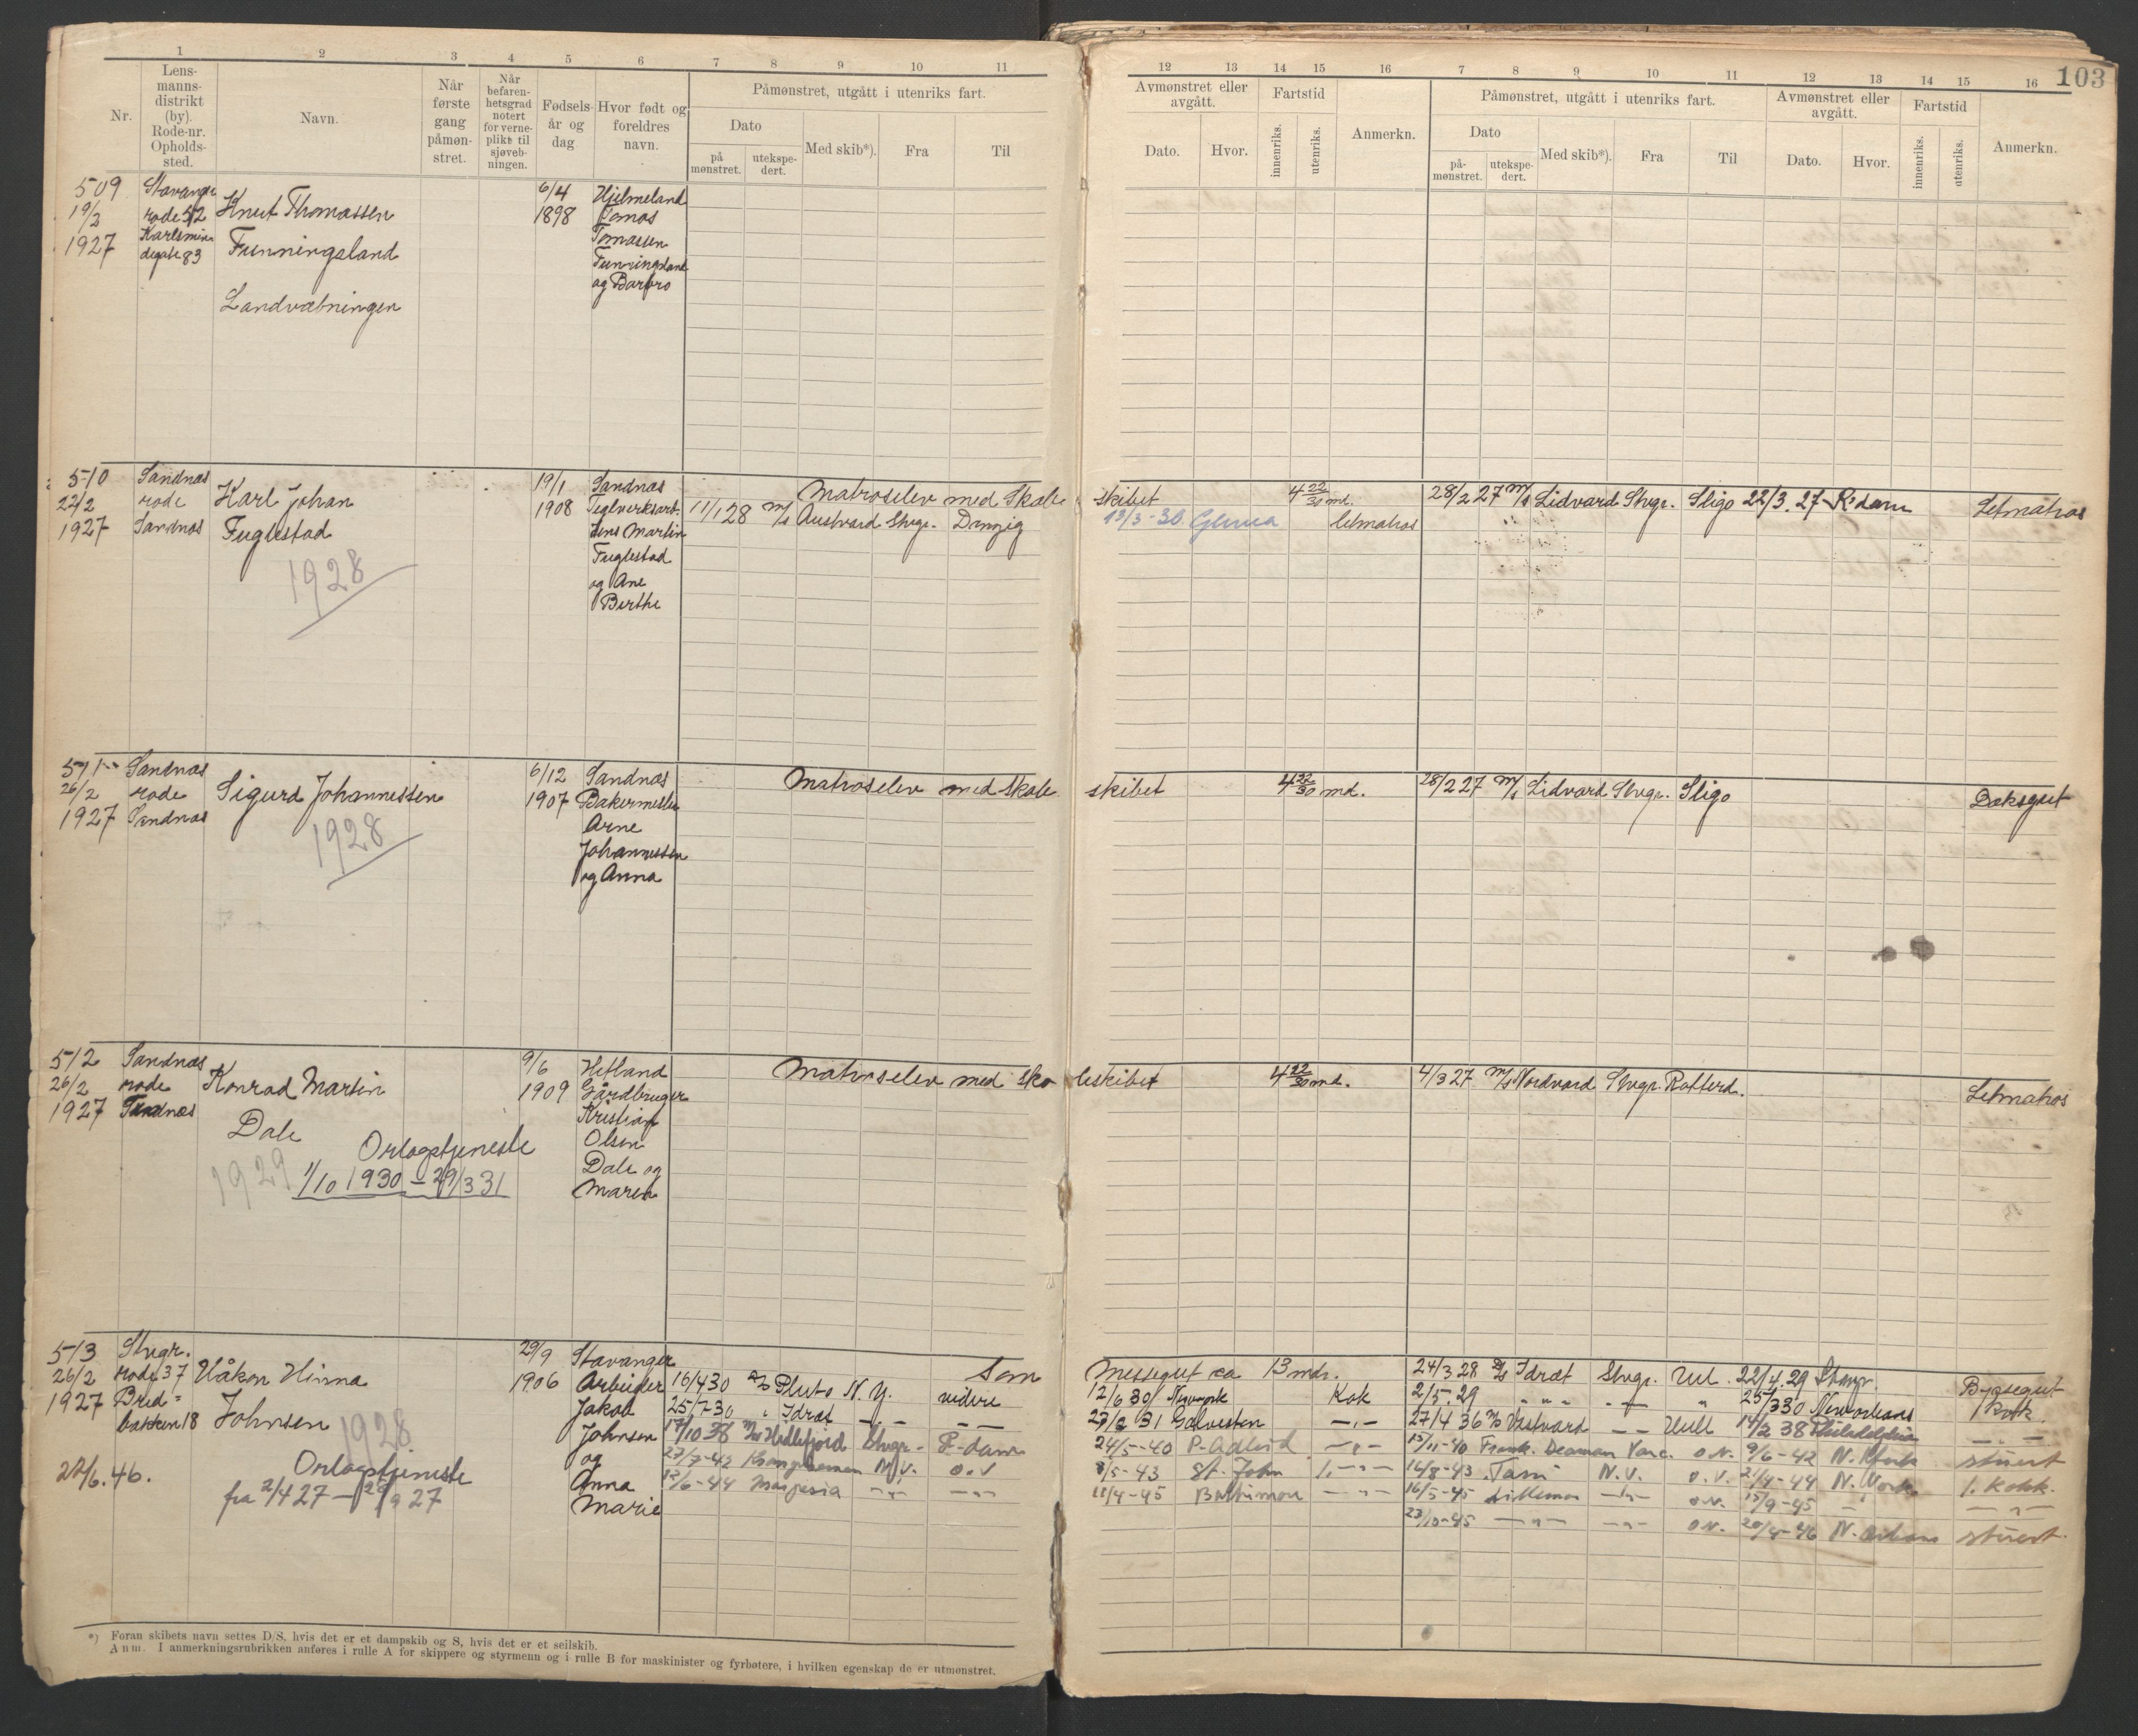 103
1 2 3 4 5 6 7 8 9 10 11
Nr.
Lens-
manns-
distrikt
(by).
Rode-nr.
Opholds-
sted.
Navn.
Når
første
gang
påmøn-
stret.
Når
befaren-
hetsgrad
notert
for verne-
plikt til
sjøveb-
ningen.
Fødsels-
år og
dag
Hvor født og
foreldres
navn.
Påmønstret, utgått i utenriks fart.
Dato
på
mønstret.
utekspe-
dert.
Med skib*).
Fra
Til
12 13 14 15 16 7 8 9 10 11 12 13 14 15 16
Avmønstret eller
avgått.
Dato.
Hvor.
Fartstid
innenriks.
utenriks.
Anmerkn.
Påmønstret, utgått i utenriks fart.
Dato
på-
mønstret.
utekspe-
dert.
Med skib*).
Fra
Til
Avmønstret eller
avgått.
Dato.
Hvor.
Fartstid
innenriks.
utenriks.
Anmerkn.
509
19/2
1927
Stavanger
rode 52
Knut Thomassen
Funningsland
Landvæbningen
6/4
1898
Hjelmeland
Tomas
Tomassen
Funningsland
og Barbro
510
22/2
1927
Sandnæs
rode
Sandnæs
Karl Johan
Fuglestad
1928
19/1
1908
Sandnæs
Teglverksarb.
Jens Martin
Fuglestad
og Ane
Berthe
Matroselev med Skole skibet 4 22/30 md. 28/2 27 M/s Lidvard Stvgr. Sligo 22/3. 27 R.dam Letmatros
11/1 28 M/s Austvard Stvgr. Danzig 13/3-30 Letmatros
511
26/2
1927
Sandnæs
rode
Sandnæs
Sigurd Johannessen
1928
6/12
1907
Sandnæs
Bakermester
Arne
Johannessen
og Anna
Matroselev med Skole skibet 4 22/30 md. 28/2 27 M/s Lidvard Stvgr. Sligo Dæksgut
512
26/2
1927
Sandnæs
rode
Sandnæs
Konrad Martin
Dale
1929
Orlogstjeneste
1/10 1930 - 29/3 31
9/6
1909
Hetland
Gårdbruger
Kristian
Olsen
Dale og
Maren
Matroselev med Sko leskibet 4 22/30 md. 4/3 27 M/s Nordvard Stvgr. Rotterd. Letmatros
513
26/2
1927
Stvgr.
rode 37
Bred=
bakken 18
Håkon Hinna
Johnsen
1928
Orlogstjeneste
fra 2/4 27 - 29/9 27
22/6. 46.
29/9
1906
Stavanger
Arbeider
Jakob
Johnsen
og
Anna
Marie
Som Messegut ca 13 mdr. 24/3 28 D/s Idræt Stvgr. Hul 22/4 29 Stvgr. Byssegut
16/4 30 Pluto N.Y. videre 12/6 30 Newyork Kok 2/5. 29 " " " 25/3 30 Neworleans Kok
25/7 30 " Idræt 31 Galveston 27/4 36 M/s Vestvard Hull 14/2 38 Philadelphia
17/10 38 M/s Hidlefjord Stvgr. P-dam 24/5-40 15/11-40 9/6-42 stuert
27/7-42 Kongshavn N.Y. o.v 8/5-43 St. John 16/8-43 Tamo N.Y. o.v. 21/4-44 N. York. 1. Kokk.
12/6-44 Marpesia 11/4-45 Baltimore 16/5-45 Lillemor o.v. 15/9-45
23/10-45 o.v. 20/4-46 N. Orleans stuert.
*) Foran skibets navn settes D/S, hvis det er et dampskib og S, hvis det er et seilskib.
Anm. I anmerkningsrubrikken anføres i rulle A for skippere og styrmenn og i rulle B for maskinister og fyrbøtere, i hvilken egenskap de er utmønstret.